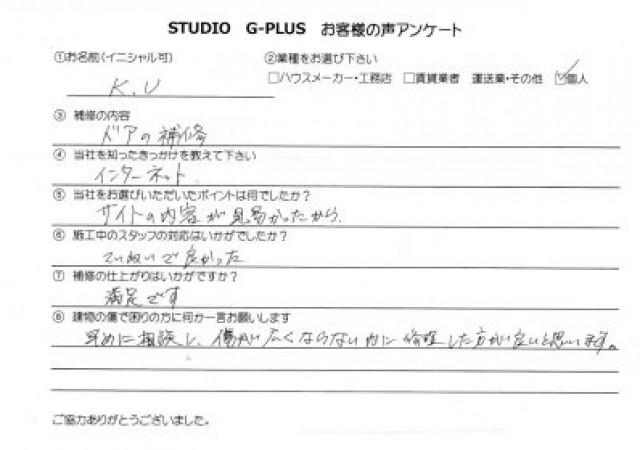 STUDIO G-PLUS お客様の声アンケート
①お名前(イニシャル可) ②業種をお選び下さい
K.U □ハウスメーカー・工務店 □賃貸業者 運送業・その他 ☑個人
③ 補修の内容
ドアの補修
④ 当社を知ったきっかけを教えて下さい
インターネット
⑤ 当社をお選びいただいたポイントは何でしたか?
サイトの内容が見易かったから、
⑥ 施工中のスタッフの対応はいかがでしたか?
ていねいで良かった
⑦ 補修の仕上がりはいかがですか?
満足です
⑧ 建物の傷で困りの方に何か一言お願いします
早めに相談し、傷が広くならない内に修理した方が良いと思います。
ご協力ありがとうございました。